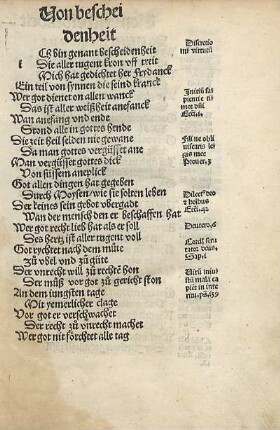 Von beschei
denheit
Ch bin genant bescheidenheit
i Die aller tugent kron vff treit
Mich hat gedichtet her Frydanck
Ein teil von synnen die seind kranck
Wer got dienet on allen wanck
Das ist aller weißheit anefanck
Wan anefang vnd ende
Stond alle in gottes hende
Die zeit heil selden nie gewane
Da man gottes vergüsset ane
Man vergüsset gottes dick
Von süssem aneplick
Got allen dingen hat gegeben
Durch Moysen wie sie solten leben
Der keines sein gebot vbergadt
Wan der mensch den er beschaffen hat
Wer got recht lieb hat als er soll
Des hertz ist aller tugent voll
Got rychtet nach dem müte
Zů vbel vnd zů güte
Der vnrecht will zů rechtē hon
Der můß vor got zů gericht ston
An dem iungsten tage
Mit yemerlicher clage
Vor got er verschwachet
Der recht zů vnrecht machet
Wer got nit förchtet alle tag
Discretio
mr̄ virtutū
Iniciū sa
pientie ti
mor dn̄i
Eccīi.
Fili ne obli
uiscaris le
gis mee
Prouer.3
Dilect⁹ deo
et hoībus
Eccīi.45
Deutero.6